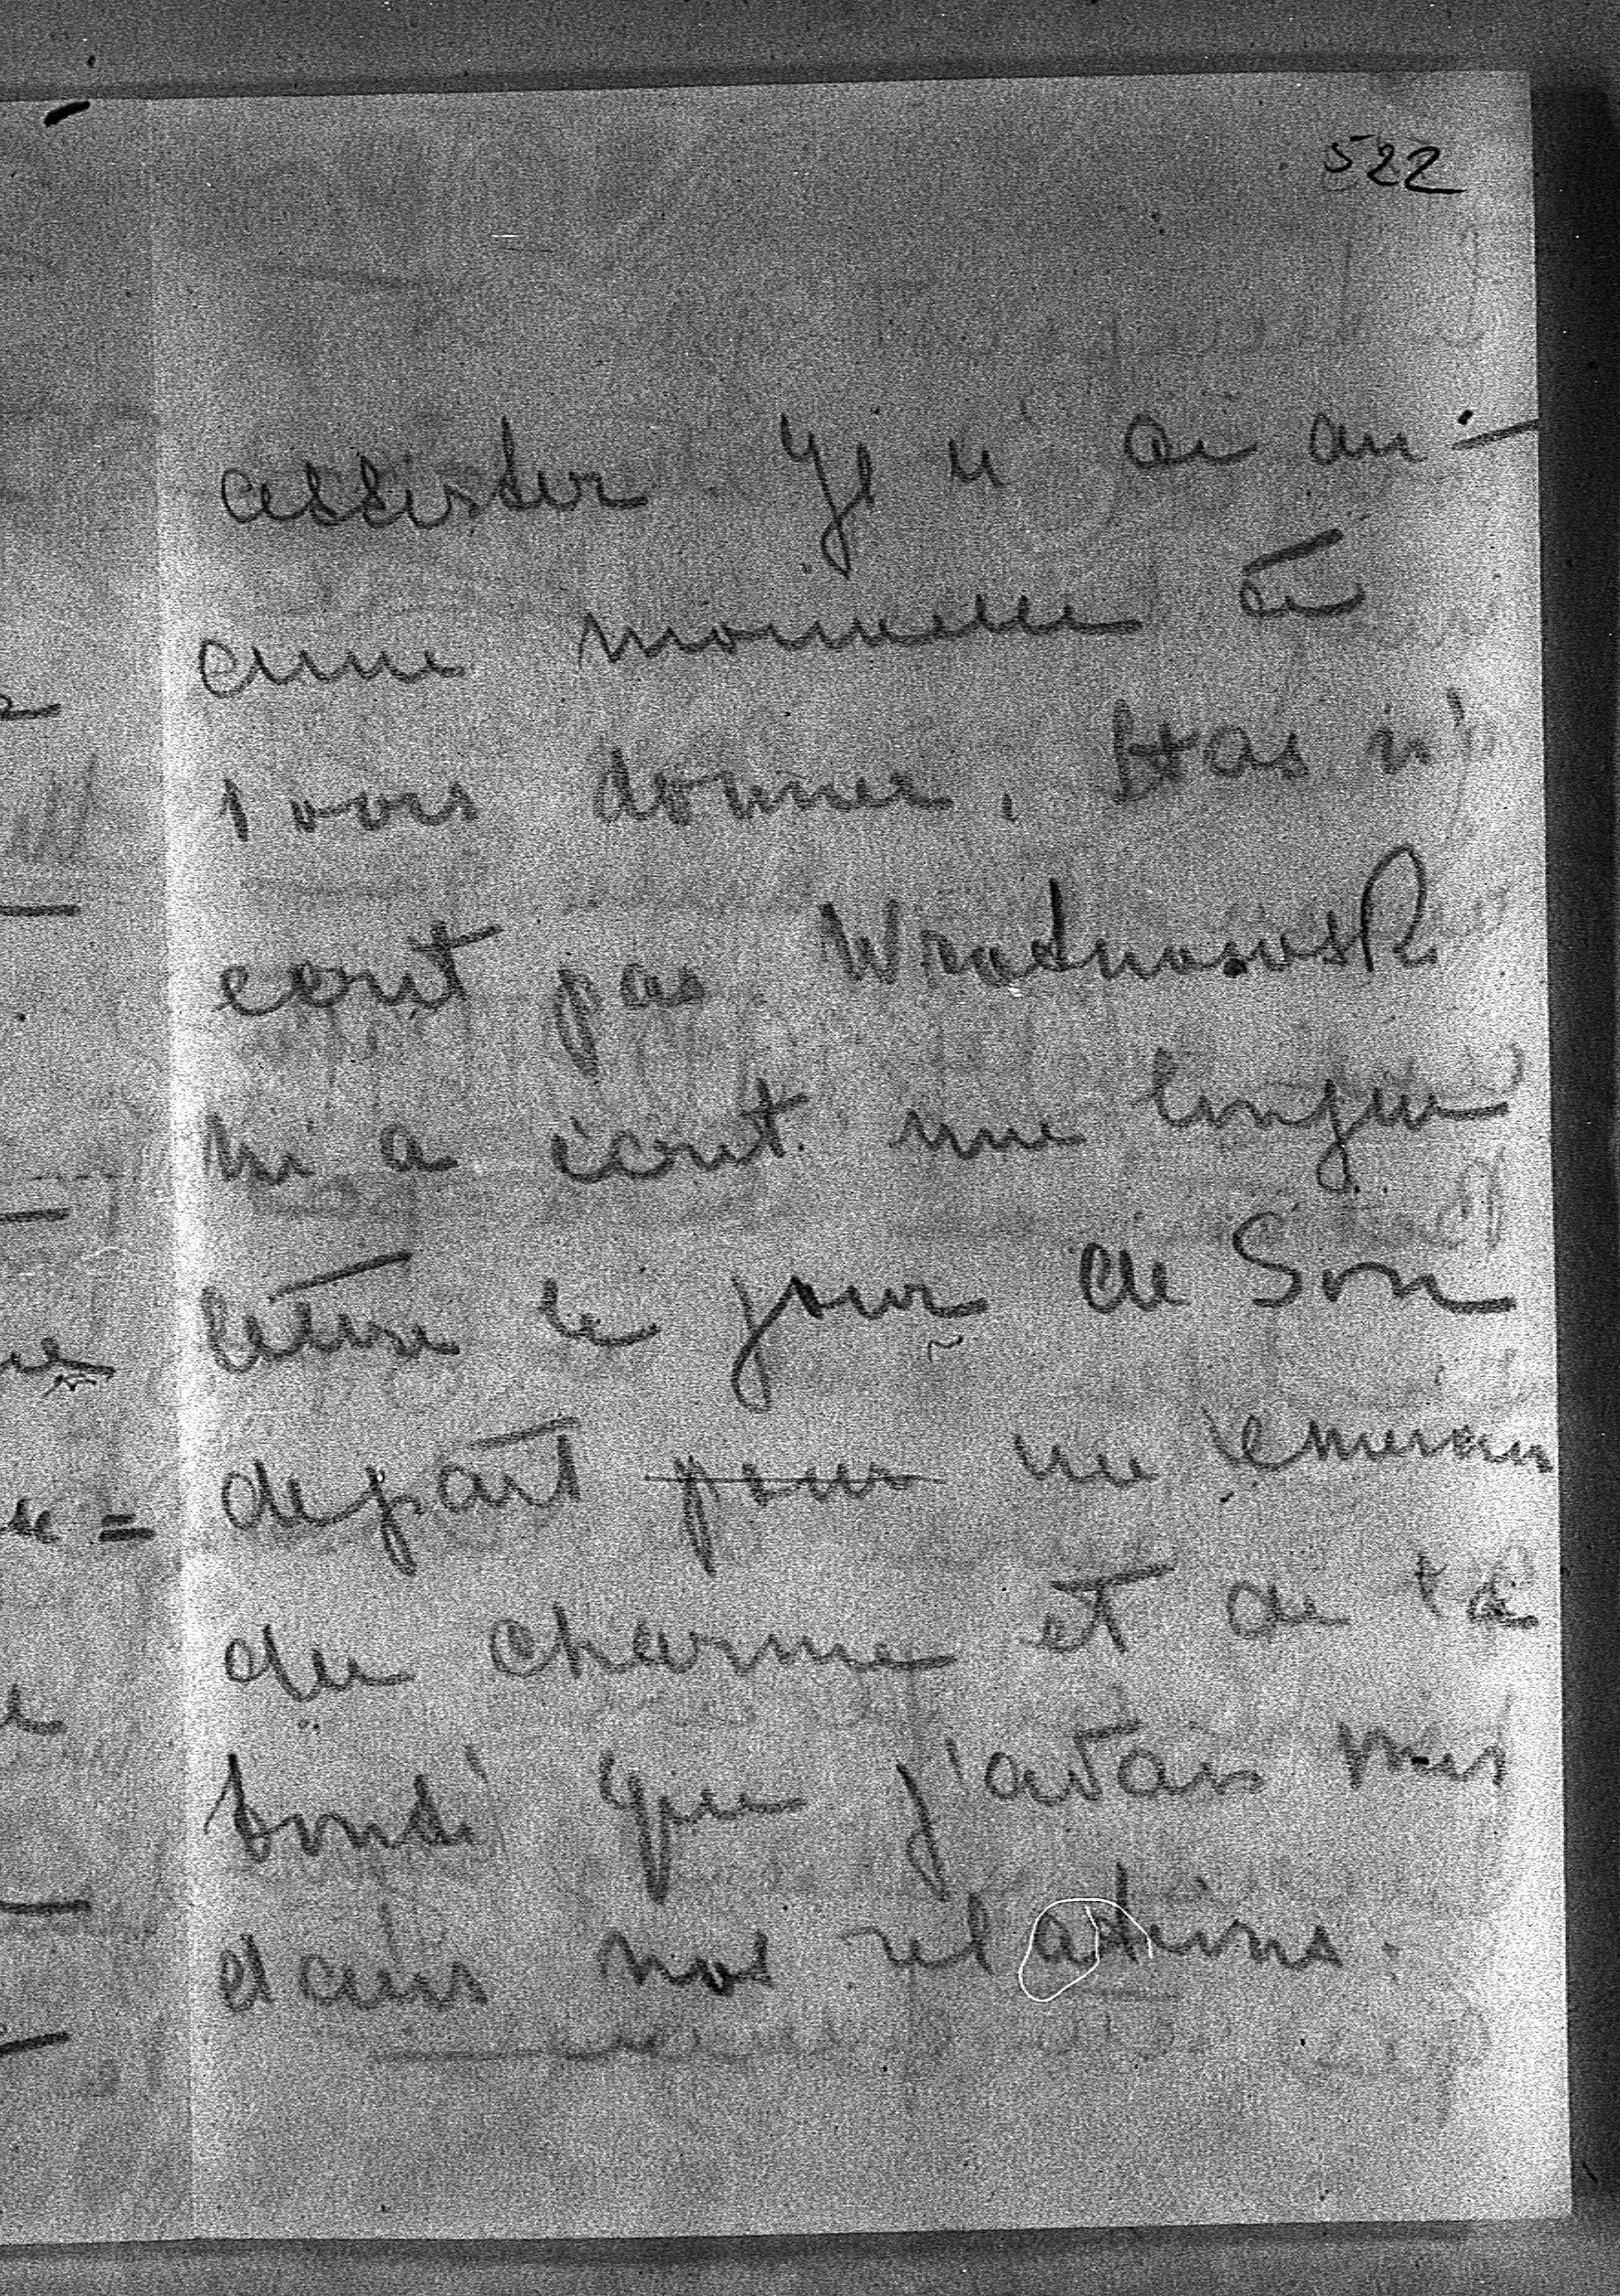 522
assister. Je n'ai au-
cune nouvelle à
vous donner. Stas n'
ecrit pas. Wrodnowski
m'a écrit une longue
lettre le jour de Son
depart me remerciant
du charme et de la
bonté que j'avais mis
dans nos relations.